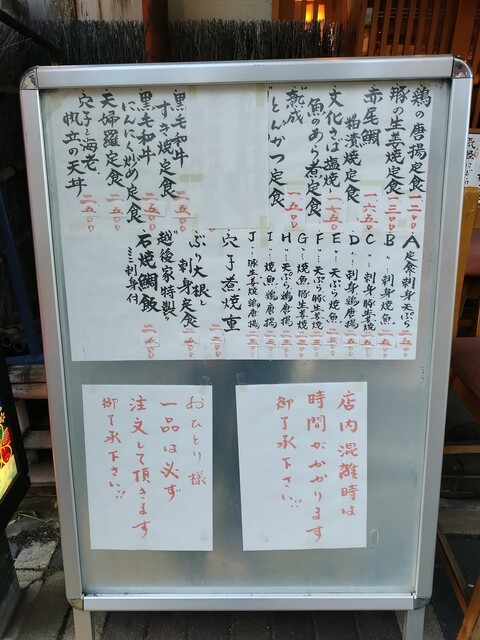 鶏の唐揚定食 一二〇〇
豚の生姜焼定食 一三〇〇
赤尾鯛
粕漬焼定食 一六五〇
文化さば塩焼
魚のあら煮定食 一七五〇
熟成
とんかつ定食 一八〇〇
黒毛和牛
すき焼定食 一五〇〇
黒毛和牛
にんにく炒め定食
天婦羅定食 二五〇〇
穴子と海老、
帆立の天丼 二五〇〇
A定食刺身天ぷら
B〃…刺身焼魚
C〃…刺身豚生姜焼
D〃…刺身鶏唐揚
E〃…天ぷら焼魚
F〃…天ぷら豚生姜焼
G〃…焼魚豚生姜焼
H〃…天ぷら鶏唐揚
I〃…焼魚鶏唐揚
J〃…豚生姜焼鶏唐揚
穴子煮焼重
ぶり大根と
刺身定食
越後家特製
石焼鯛飯
ミニ刺身付
店内混雑時は
時間がかかります
御了承下さい!!
おひとり様
一品は必ず
注文して頂きます
御了承下さい!!